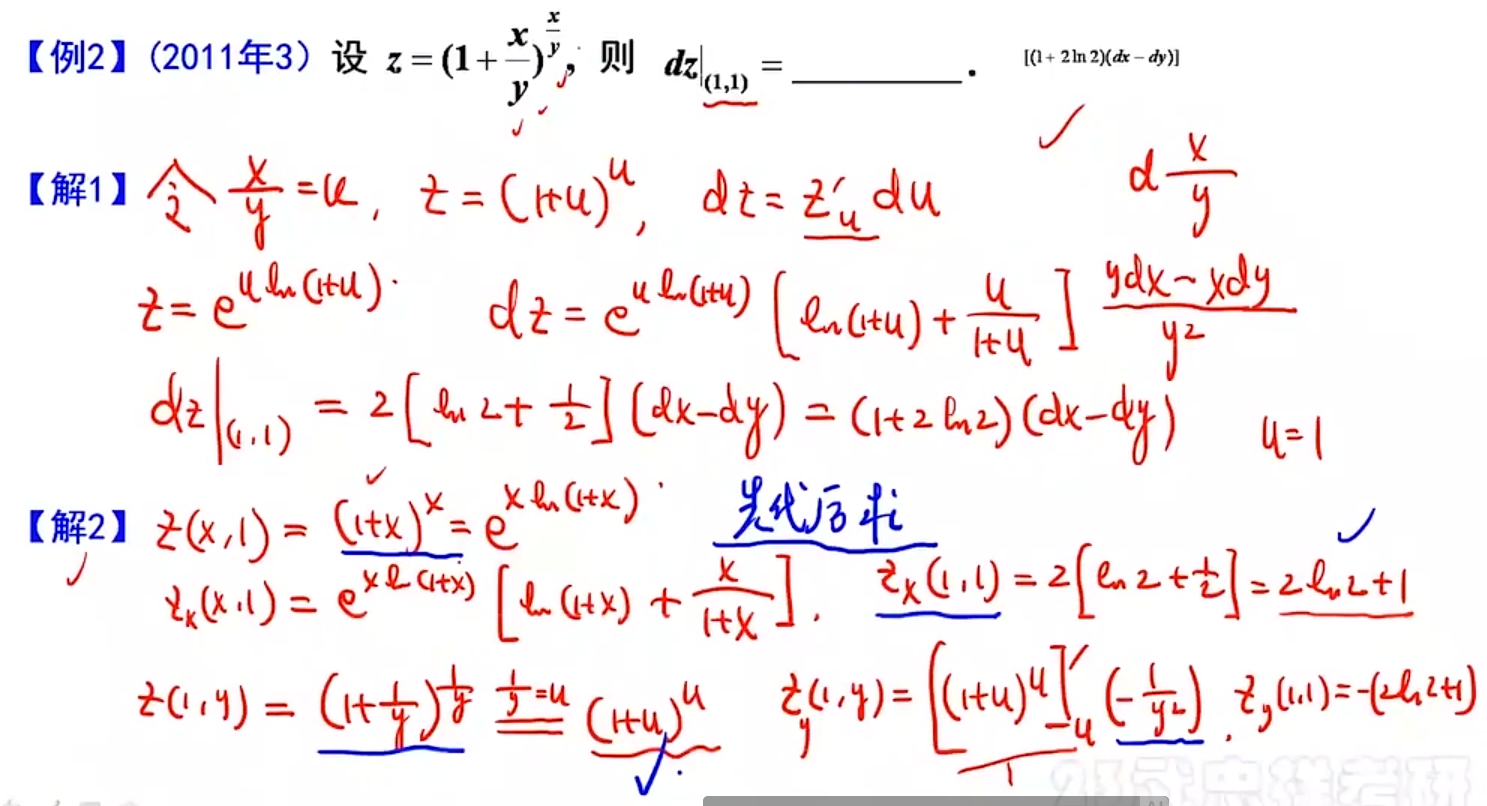 【例2】(2011年3) 设 z=(1+x/y)^(x/y), 则 dz|(1,1) = ________. [(1+2ln2)(dx-dy)]
【解1】令 x/y=u, z=(1+u)^u, dz=z'_u du d x/y
z=e^(u ln(1+u)). dz=e^(u ln(1+u)) [ln(1+u)+u/(1+u)] (ydx-xdy)/y²
dz|(1,1) = 2[ln2+1/2](dx-dy)=(1+2ln2)(dx-dy) u=1
【解2】z(x,1)=(1+x)^x=e^(x ln(1+x)). 先代后求
z_x(x,1)=e^(x ln(1+x)) [ln(1+x)+x/(1+x)]. z_x(1,1)=2[ln2+1/2]=2ln2+1
z(1,y)=(1+1/y)^(1/y) 1/y=u (1+u)^u z_y(1,y)=[(1+u)^u]'_u(-1/y²). z_y(1,1)=-(2ln2+1)